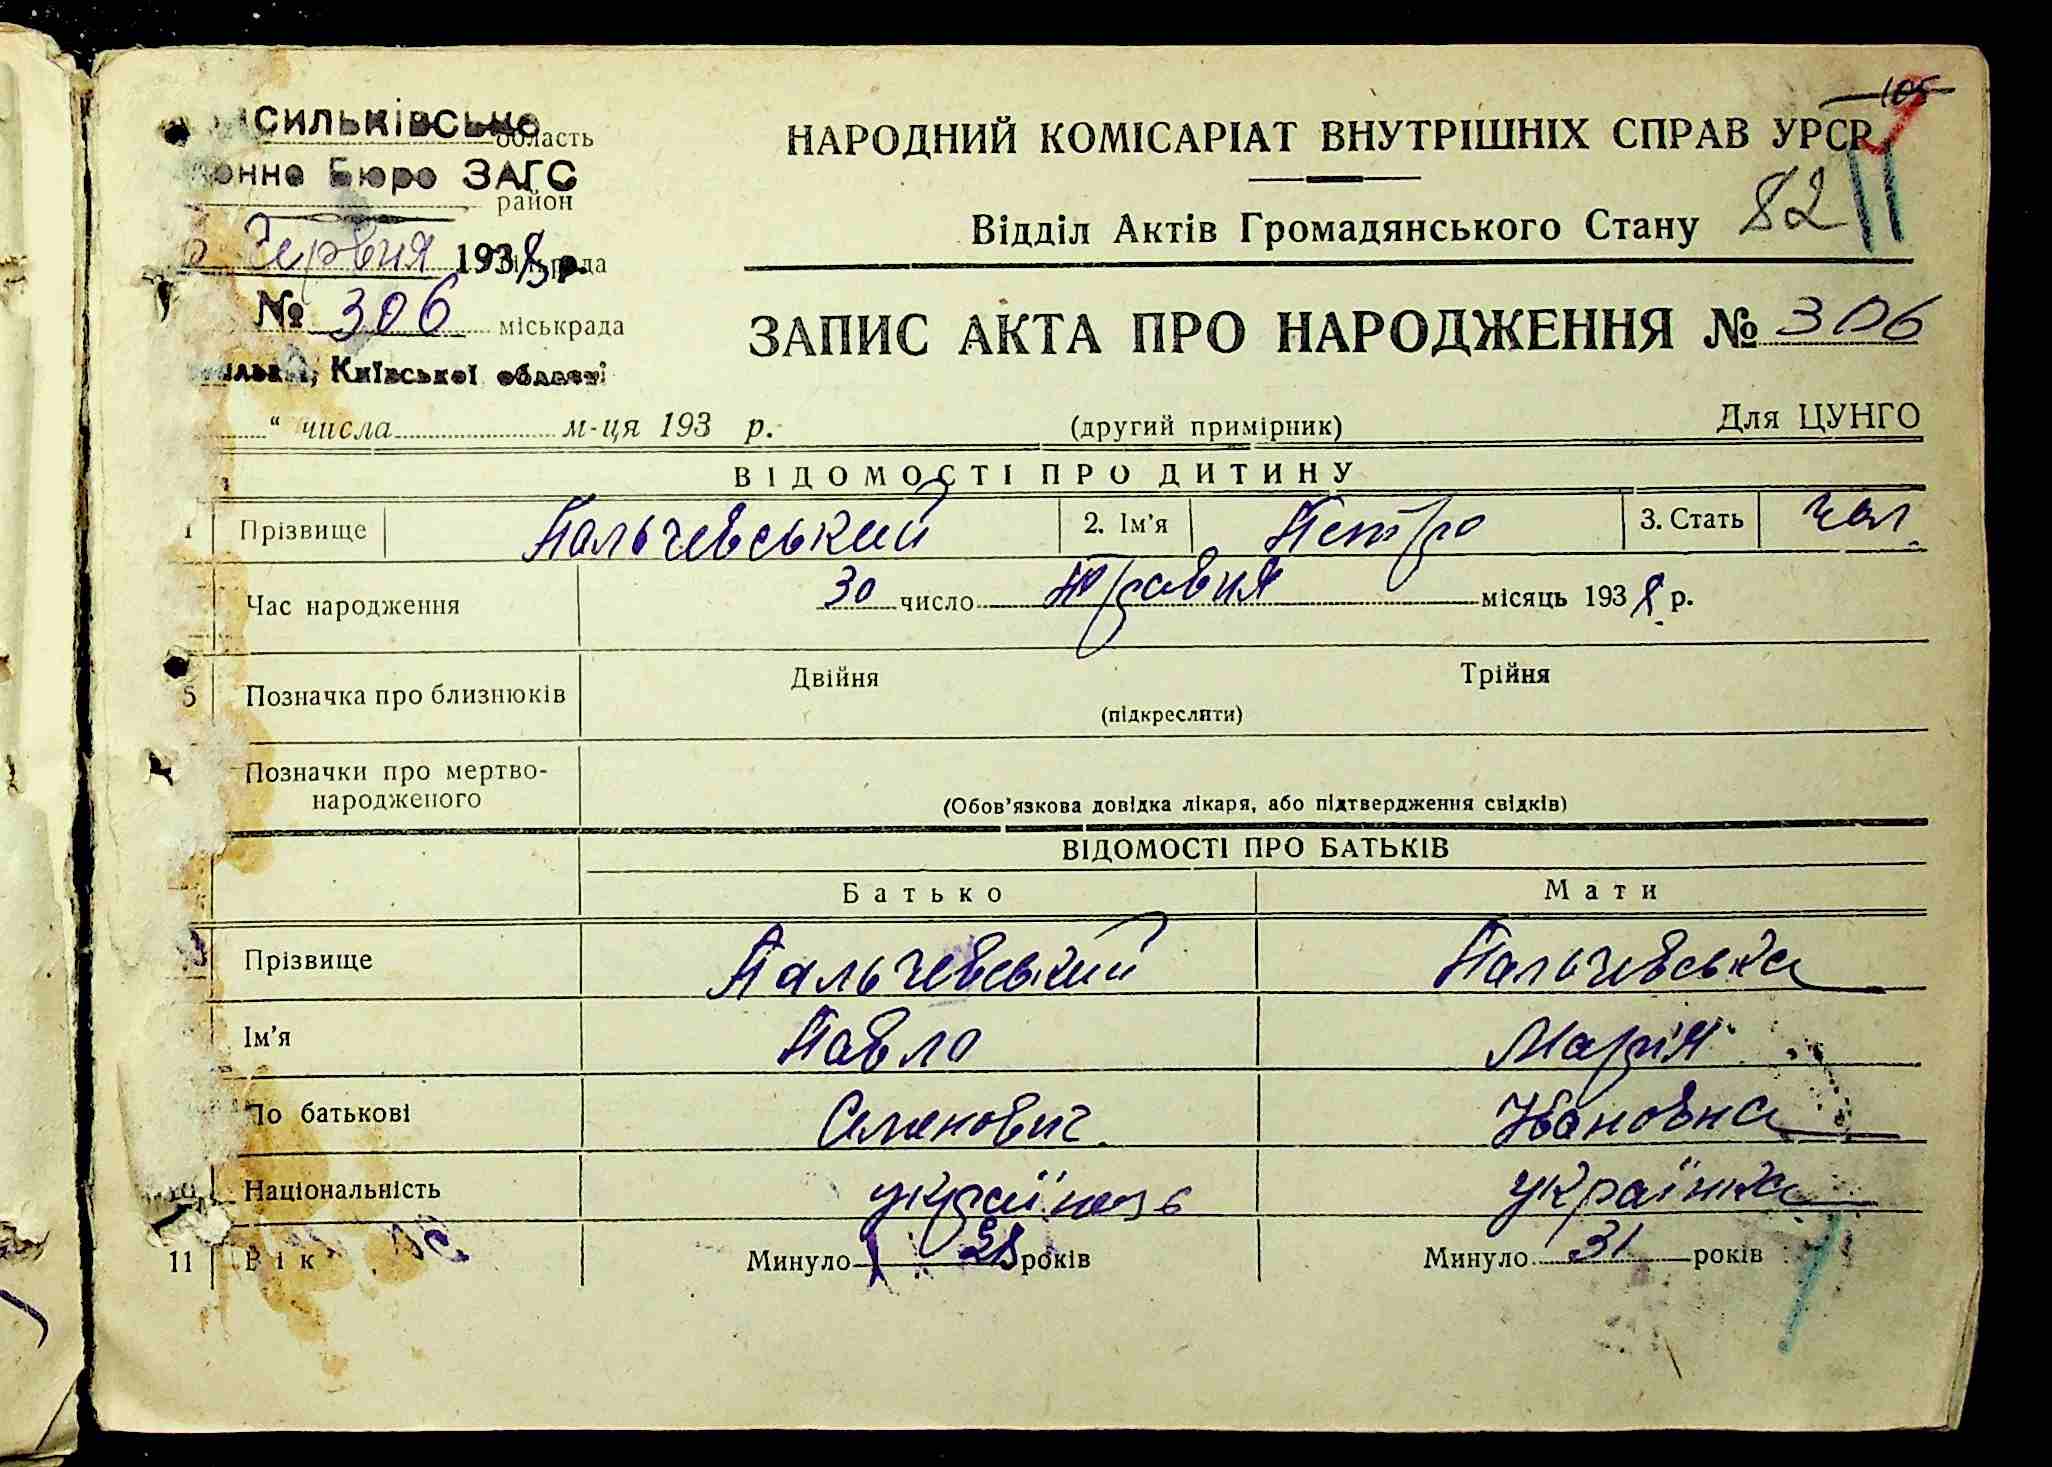 сильківське область
онне Бюро ЗАГС
район
Червня 1938 р.
№ 306 міськрада
Київської області
“ числа м-ця 193 р.
105
НАРОДНИЙ КОМІСАРІАТ ВНУТРІШНІХ СПРАВ УРСР
Відділ Актів Громадянського Стану 82
ЗАПИС АКТА ПРО НАРОДЖЕННЯ № 306
(другий примірник) Для ЦУНГО
ВІДОМОСТІ ПРО ДИТИНУ
1 Прізвище Пальчевський 2. Ім’я Петро 3. Стать чол.
Час народження 30 число Травня місяць 1938 р.
5 Позначка про близнюків Двійня Трійня
(підкреслити)
Позначки про мертво-
народженого
(Обов’язкова довідка лікаря, або підтвердження свідків)
ВІДОМОСТІ ПРО БАТЬКІВ
Батько Мати
Прізвище Пальчевський Пальчевська
Ім’я Павло Марія
По батькові Семенович Івановна
10 Національність українець українка
11 Вік Минуло років Минуло 31 років